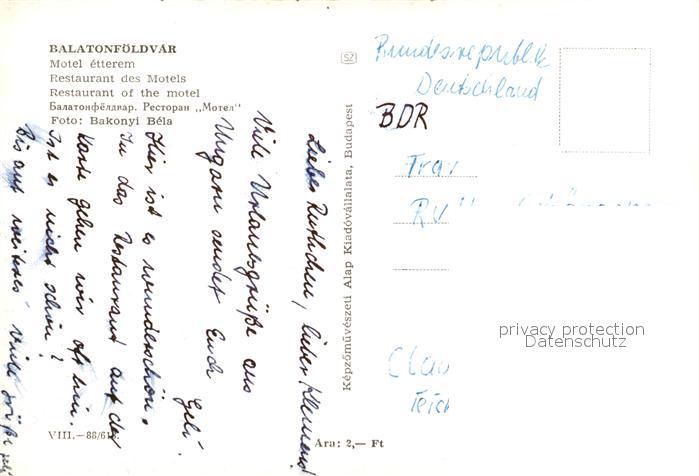 BALATONFÖLDVÁR
Motel étterem
Restaurant des Motels
Restaurant of the motel
Балатонфёлдвар. Ресторан „Мотел"
Foto: Bakonyi Béla
Liebes Ruthchen, lieber Klemens!
Viele Urlausgrüße aus
Ungarn sendet Euch
Geli.
Hier ist es wunderschön.
In das Restaurant auf der
Karte gehen wir oft hin.
Ist es nicht schön?
Bis auf weiteres viele Grüße
VIII.—88/61
Képzőművészeti Alap Kiadóvállalata, Budapest
SZ
Bundesrepublik
Deutschland
BDR
Ára: 2,— Ft
privacy protection
Datenschutz